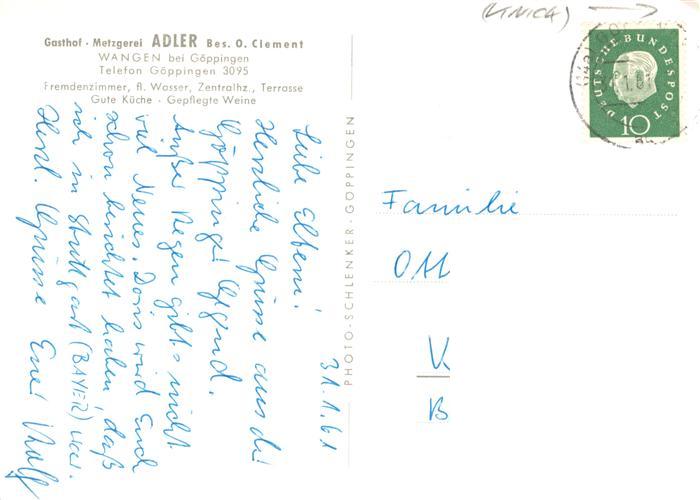 (UNICA) →
Gasthof · Metzgerei ADLER Bes. O. Clement
WANGEN bei Göppingen
Telefon Göppingen 3095
Fremdenzimmer, fl. Wasser, Zentralhz., Terrasse
Gute Küche · Gepflegte Weine
31.1.61
Liebe Eltern!
Herzliche Grüsse aus der
Göppinger Gegend.
Außer Regen gibts nicht
viel Neues. Doris wird Euch
schon berichtet haben, daß
ich in Stuttgart (BAYER) war.
Herzl. Grüsse Euer Rolf
PHOTO-SCHLENKER · GÖPPINGEN
DEUTSCHE BUNDESPOST
10
Familie
Ott
K
B